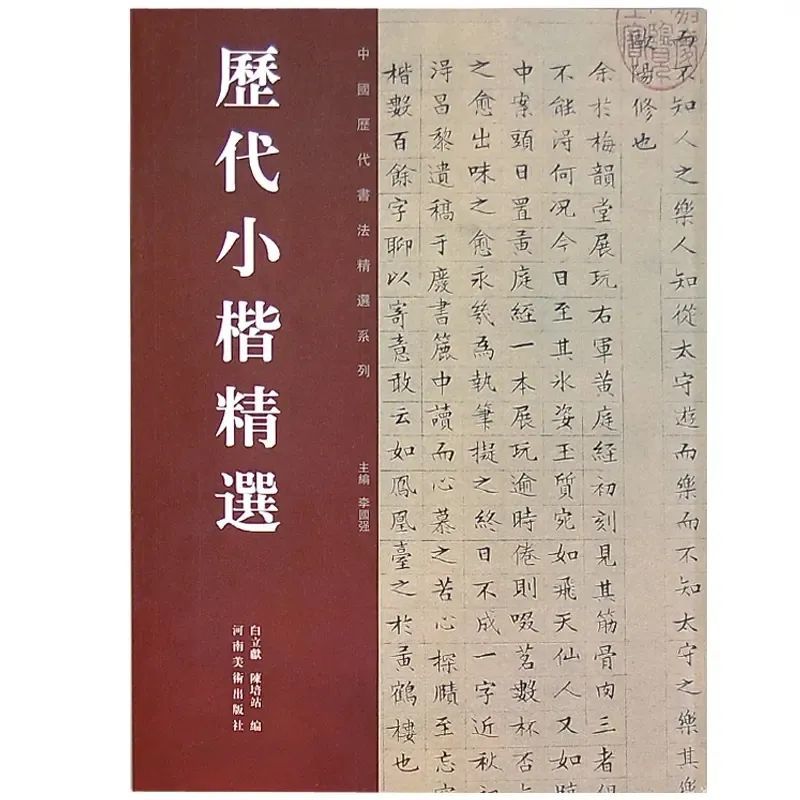 歷代小楷精選
中國歷代書法精選系列
主編 李國强
白立獻 陳培站 編
河南美術出版社
而不知人之樂人知從太守遊而樂而不知太守之樂其樂
歐陽修也
余於梅韻堂展玩右軍黃庭經初刻見其筋骨肉三者俱
不能淂何况今日至其氷姿玉質宛如飛天仙人又如
中案頭日置黃庭經一本展玩逾時倦則啜茗數杯否
之愈出味之愈永幾為執筆擬之終日不成一字近秋
淂昌黎遺稿于慶書簏中讀而心慕之苦心探賾至忘
楷數百餘字聊以寄意敢云如鳳凰臺之於黃鶴樓也